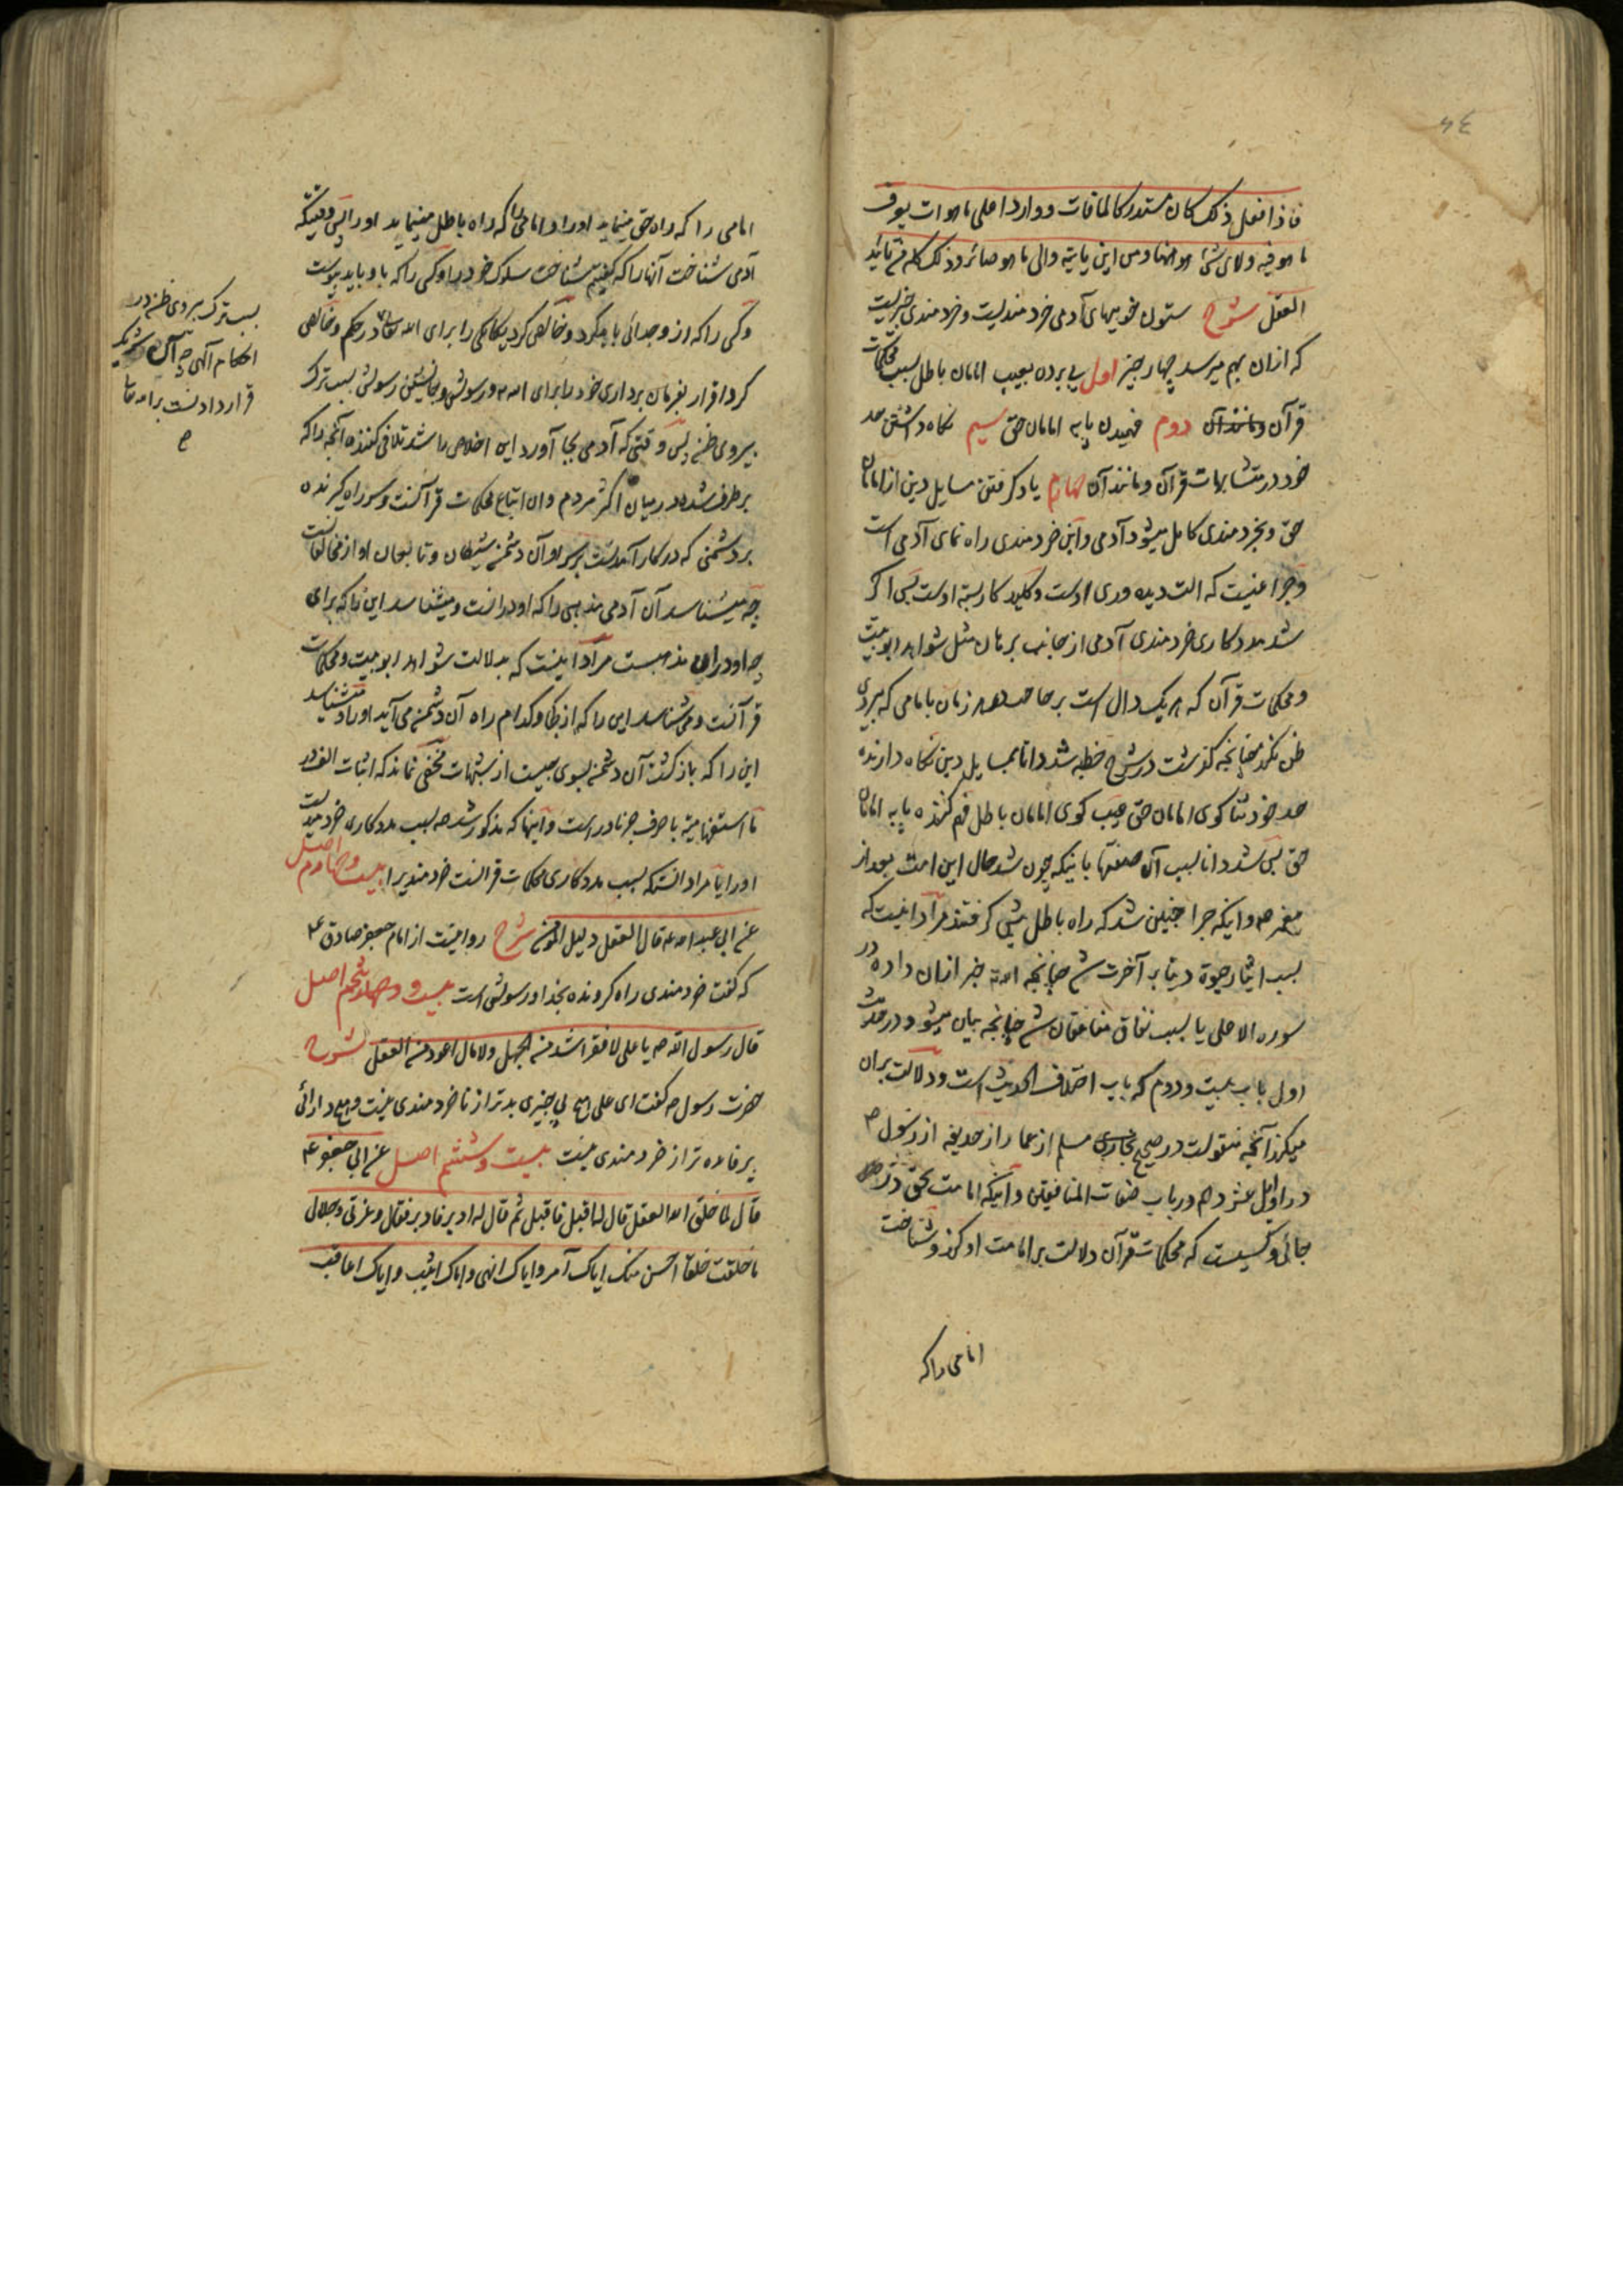 فاذا فعل ذلک کان مستدرکا لما فات و واردا علی ما هو ات یعرف
ما هو فیه ولای شئ هو ههنا ومن این یاتیه والی ما هو صائر وذلک کله من تائید
العقل شرح ستون خوبیهای آدمی خردمندیست و خردمندی چیزیست
که ازان بهم میرسد چهار چیز اول پی بردن بعیب امامان باطل بسبب محکمات
قرآن و مانند آن دوم فهمیدن پایه امامان حق سیم نگاه داشتن حد
خود در متشابهات قرآن و مانند آن چهارم یاد گرفتن مسایل دین از امامان
حق و بخردمندی کامل میشود آدمی و این خردمندی راه نمای آدمی است
و چراغیست که الت دیده وری اوست و کلید کار بسته اوست پس اگر
شد مددکاری خردمندی آدمی از جانب برهان مثل شواهد ربوبیت
و محکمات قرآن که هر یک دال است بر صاحب هر زمان با امامی که پیروی
ظن نکند چنانچه گذشت در شرح خطبه شد دانا بمسایل دین نگاه دارنده
حد خود ثنا گوی امامان حق عیب گوی امامان باطل فهم کننده پایه امامان
حق پس شد دانا بسبب آن صفتها باینکه چون شد حال این امت بعد از
پیغمبر ص و اینکه چرا چنین شد که راه باطل پیش گرفتند مراد اینست که
بسبب ایثار حیوة دنیا بر آخرت شد چنانچه الله خبر ازان داده در
سوره الاعلی یا بسبب نفاق منافقان شد چنانچه بیان میشود در حدیث
اول باب بیست و دوم که باب اختلاف الحدیث است و دلالت بران
میکند آنچه منقولست در صحیح مسلم از عمار از حذیفه از رسول ص
در اوایل عشر دهم در باب صفات المنافقین و اینکه امامت بحق در
جائی و کسیست که محکمات قرآن دلالت بر امامت او کند و شناخت
امامی را که
امامی را که راه حق مینماید اورا و امامی را که راه باطل مینماید اورا پس وقتیکه
آدمی شناخت آنها را که گفتیم شناخت سلوک خود را و کسی را که با و باید پیوست
و کسی را که از و جدائی باید کرد و خالص کرد یگانگی را برای الله تعالی در حکم و خالص
کرد اقرار بفرمان برداری خود را برای الله و رسولش و جانشین رسولش بسبب ترک
پیروی ظن پس وقتی که آدمی بجا آورد این اخلاص را شد تلافی کننده آنچه را که
بر طرف شده در میان اکثر مردم و ان اتباع محکمات قرآنست و سر راه گیرنده
بر دشمنی که در کار آمدنست بر سر او آن دشمن شیطان و تابعان او از مخالفانست
چه میشناسد آن آدمی مذهبی را که او درانست و میشناسد این را که برای
چه او دران مذهبست مراد اینست که بدلالت شواهد ربوبیت و محکمات
قرآنست و میشناسد این را که از کجا و کدام راه آن دشمن می آید اورا و میشناسد
این را که باز گشت آن دشمن بسوی چیست از شبهات مخفی نماند که اثبات الف در
ما استفهامیه با حرف جر نادر است و اینها که مذکور شد همه بسبب مددکاری خردمندیست
اورا یا مراد انستکه بسبب مددکاری محکمات قرانست خردمندیرا بیست و چهارم اصل
عن ابی عبدالله ع قال العقل دلیل المؤمن شرح روایتست از امام جعفر صادق ع
که گفت خردمندی راه گرونده بخدا و رسولش است بیست و پنجم اصل
قال رسول الله ص یا علی لا فقر اشد من الجهل ولا مال اعود من العقل شرح
حضرت رسول ص گفت ای علی هیچ بی چیزی بدتر از ناخردمندی نیست و هیچ دارائی
پر فایده تر از خردمندی نیست بیست و ششم اصل عن ابی جعفر ع
قال لما خلق الله العقل قال له اقبل فاقبل ثم قال له ادبر فادبر فقال وعزتی وجلالی
ما خلقت خلقا احسن منک ایاک آمر وایاک انهی وایاک اثیب وایاک اعاقب
بسبب ترک پیروی ظن در
احکام آلهی چه آن شریک
قرار دادنست برای الله تعالی